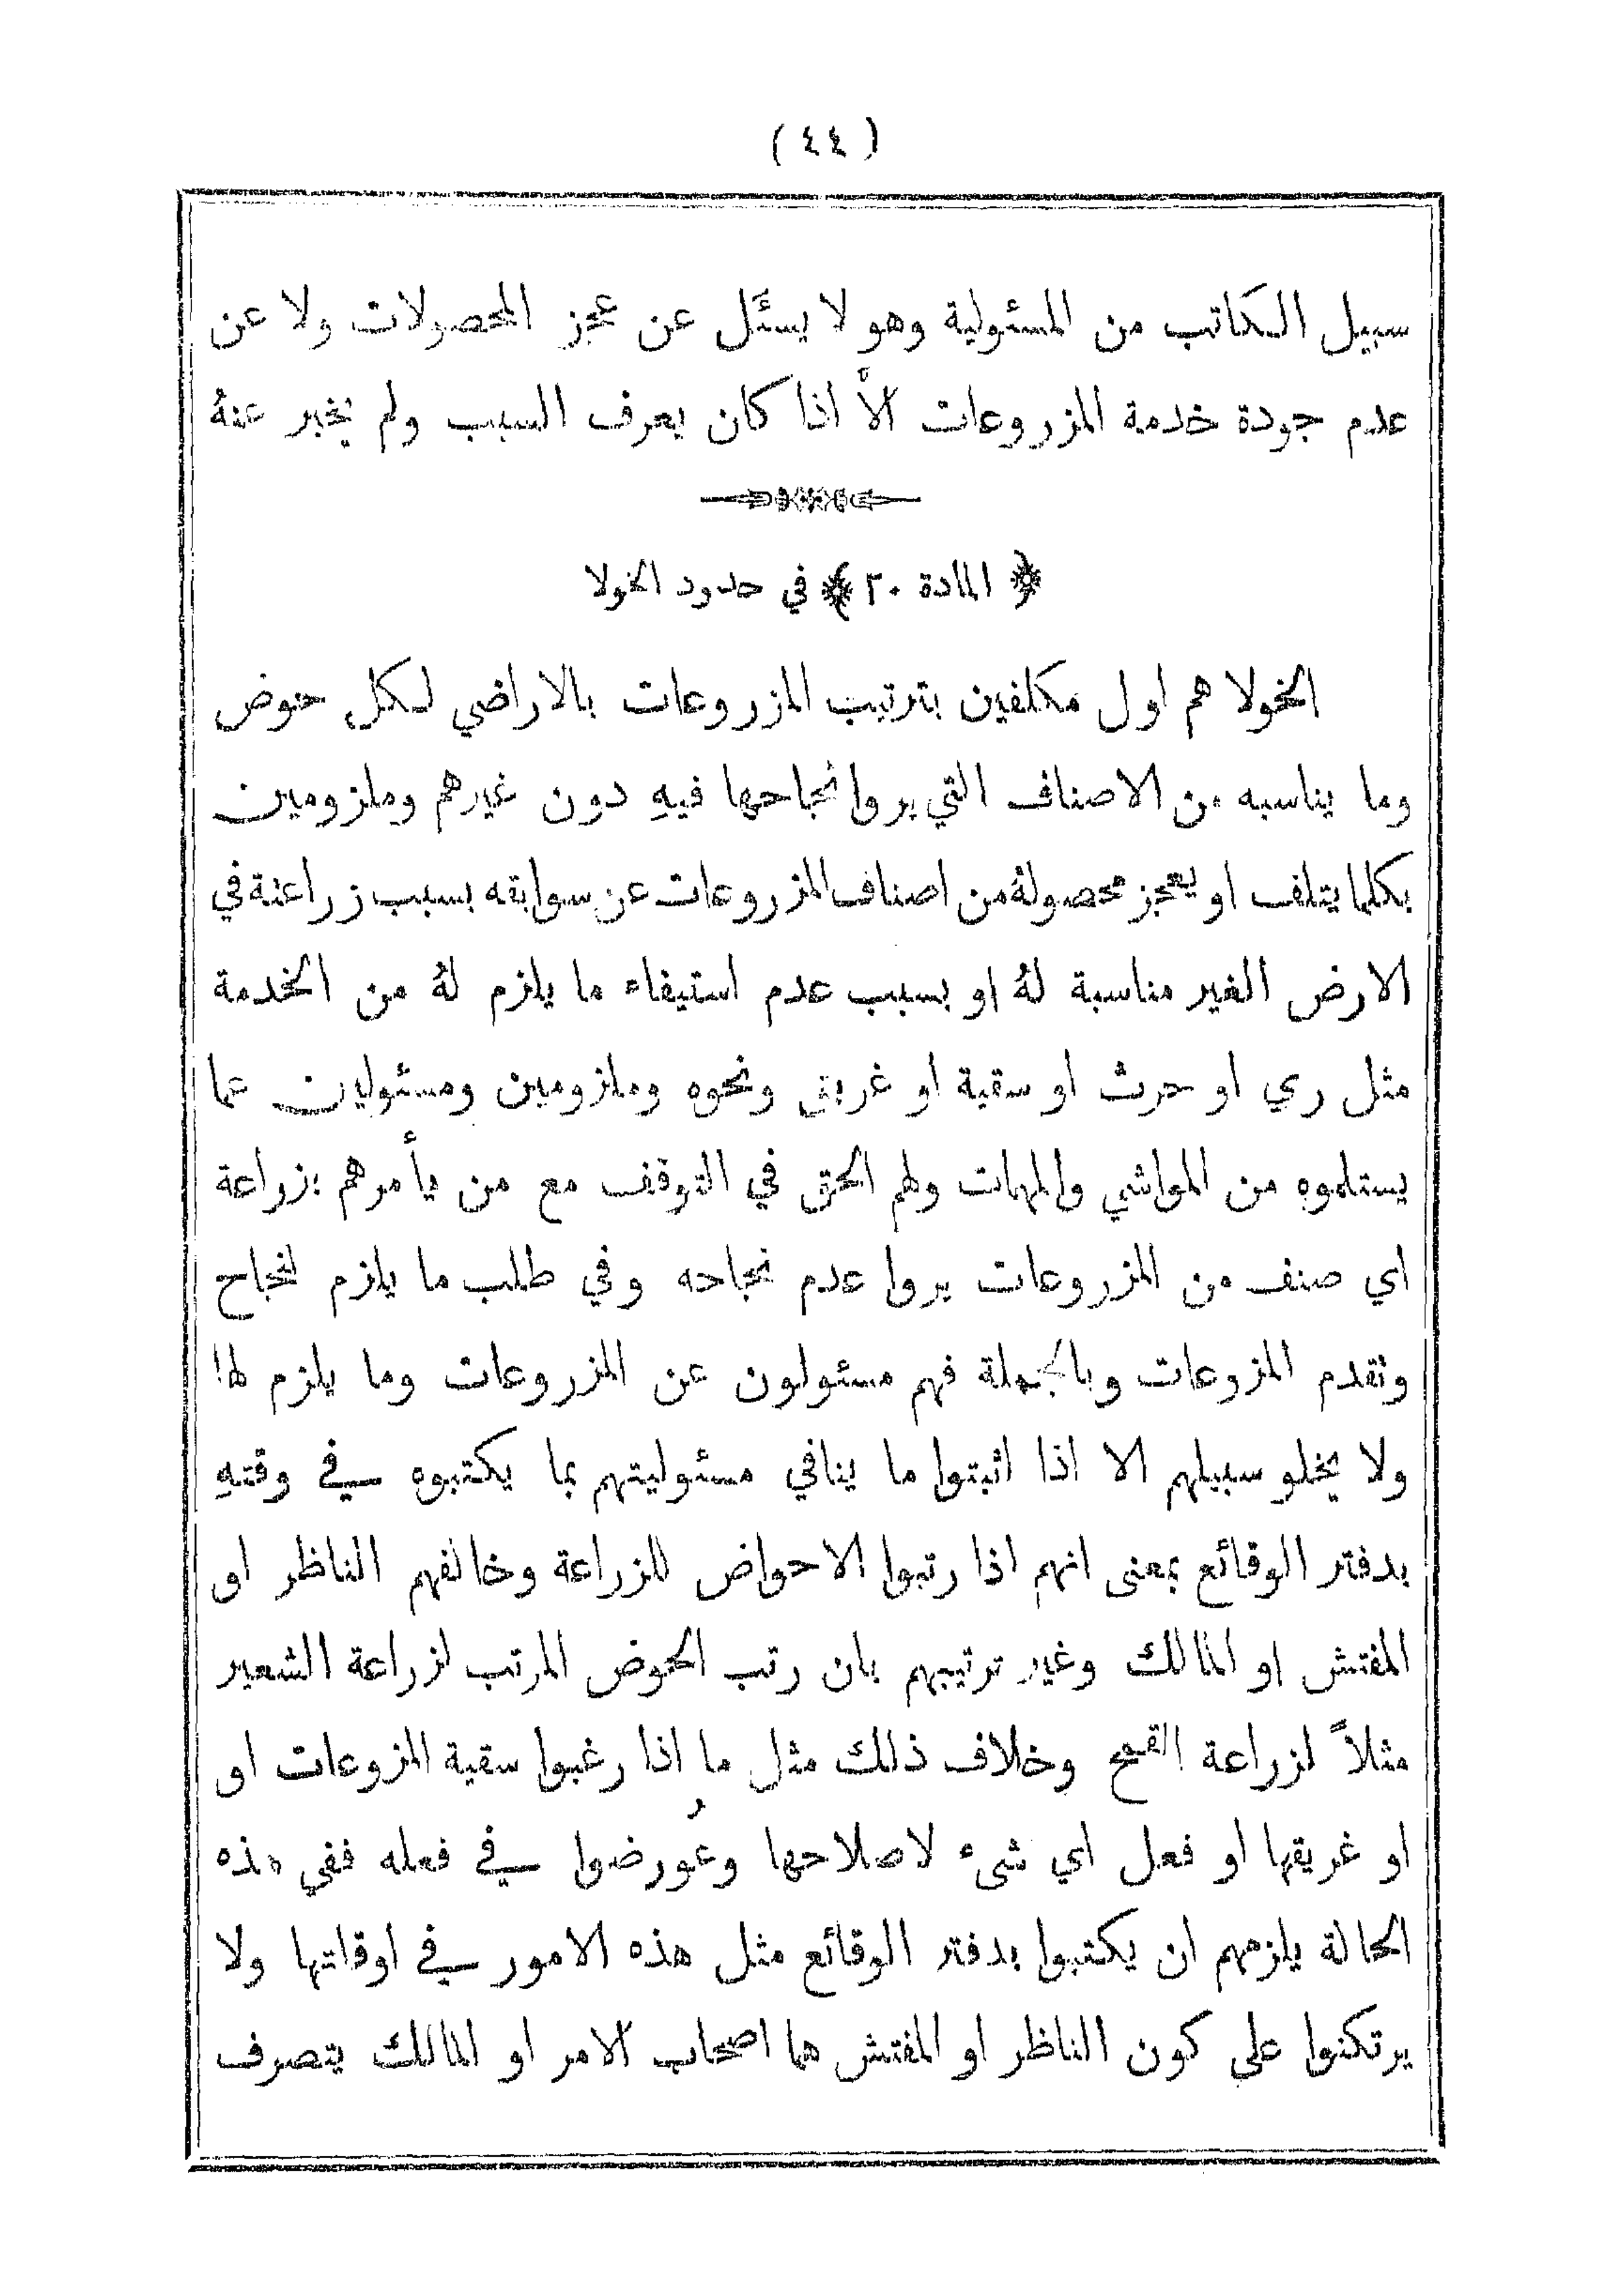 ( ٤٤ )
سبيل الكاتب من المسئولية وهو لا يسئَل عن عجز المحصولات ولا عن
عدم جودة خدمة المزروعات الاَّ اذا كان يعرف السبب ولم يخبر عنهُ
﴿ المادة ٢٠ ﴾ في حدود الخولا
الخولا هم اول مكلفين بترتيب المزروعات بالاراضي لكل حوض
وما يناسبه من الاصناف التي يروا نجاحها فيهِ دون غيرهم وملزومين
بكلما يتلف او يعجز محصولهُ من اصناف المزروعات عن سوابقه بسبب زراعنة في
الارض الغير مناسبة لهُ او بسبب عدم استيفاء ما يلزم لهُ من الخدمة
مثل ري او حرث او سقية او غريق ونحوه وملزومين ومسئولين عما
يستلموه من المواشي والمهمات ولهم الحق في التوقف مع من يأمرهم بزراعة
اي صنف من المزروعات يروا عدم نجاحه وفي طلب ما يلزم لنجاح
ونقدم المزروعات وبالجملة فهم مسئولون عن المزروعات وما يلزم لها
ولا يخلو سبيلهم الا اذا اثبتوا ما ينافي مسئوليتهم بما يكتبوه في وقتهِ
بدفتر الوقائع بمعنى انهم اذا رتبوا الاحواض للزراعة وخالفهم الناظر او
المفتش او المالك وغير ترتيبهم بان رتب الحوض المرتب لزراعة الشعير
مثلاً لزراعة القمح وخلاف ذلك مثل ما اذا رغبوا سقية المزوعات او
او غريقها او فعل اي شىء لاصلاحها وعُورضوا في فعله ففي هذه
الحالة يلزمهم ان يكتبوا بدفتر الوقائع مثل هذه الامور في اوقاتها ولا
يرتكنوا على كون الناظر او المفتش هما اصحاب الامر او المالك يتصرف